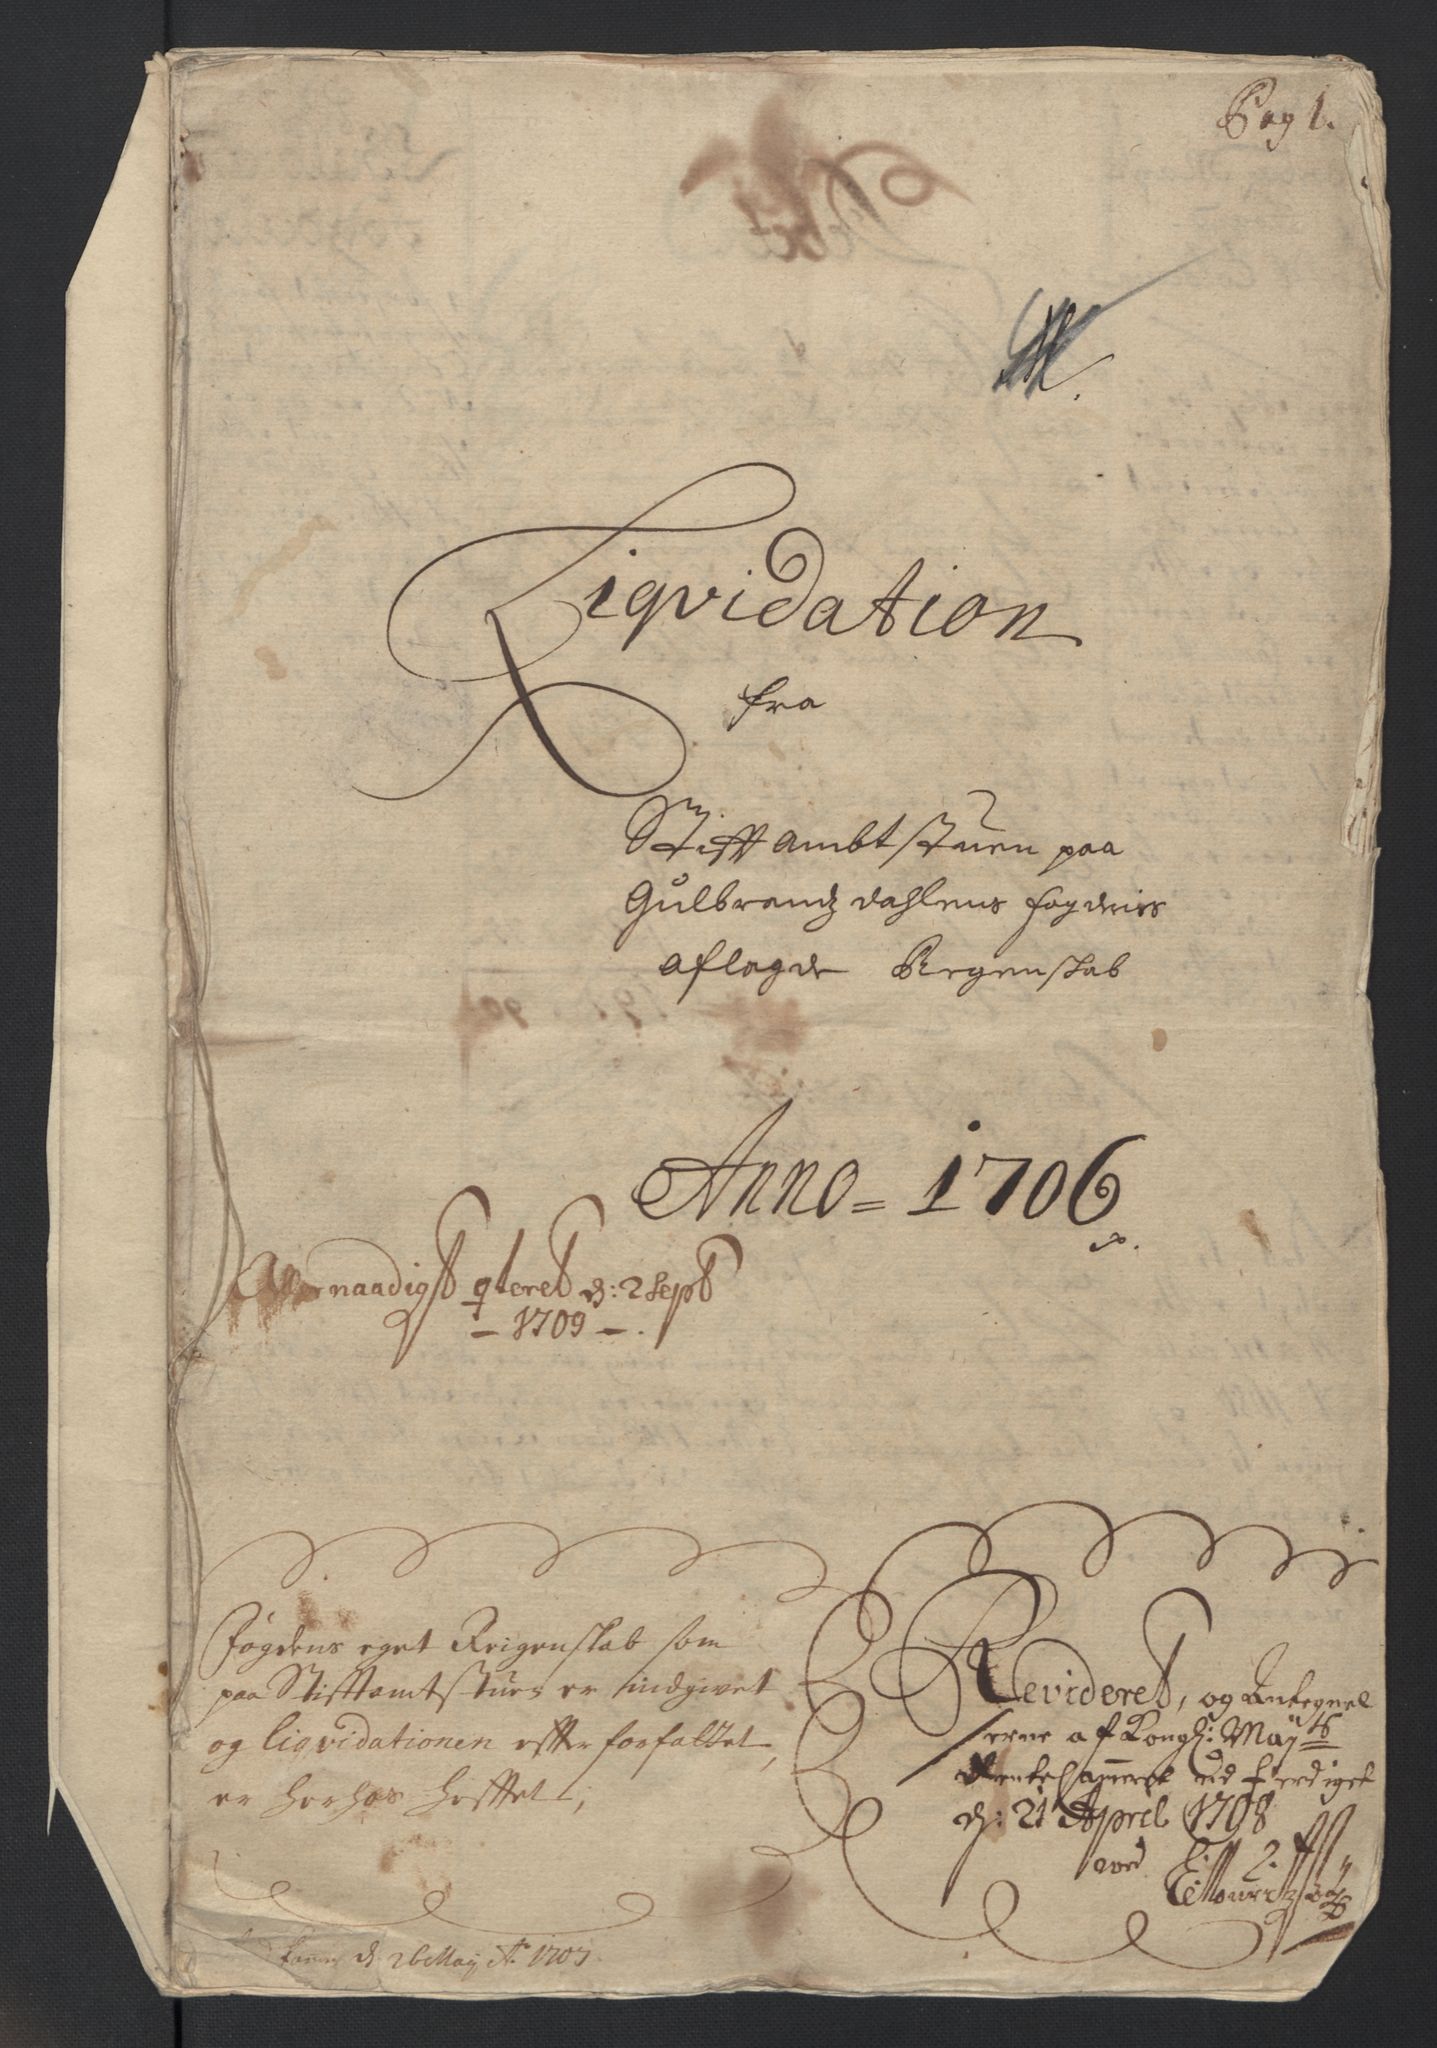 Pag 1.
Liqvidation
fra
Stiftambtstuen paa
Gulbrandz dahlens fogderiss
aflagde Regenskab
Anno = 1706
Allernaadigst qteret d: 2 Sept
- 1709 -.
Fogdens eget Reigenskab som
paa Stiftamtstuen er indgivet
og liqvidationen efter forfattet,
er her hos hefftet;
Revideret, og Antegnel
serne af Kongl: Maÿts
Rentekammeret ud ferdiget
d: 21 Aprel 1708
ved
d 26 Maij Ao. 1707